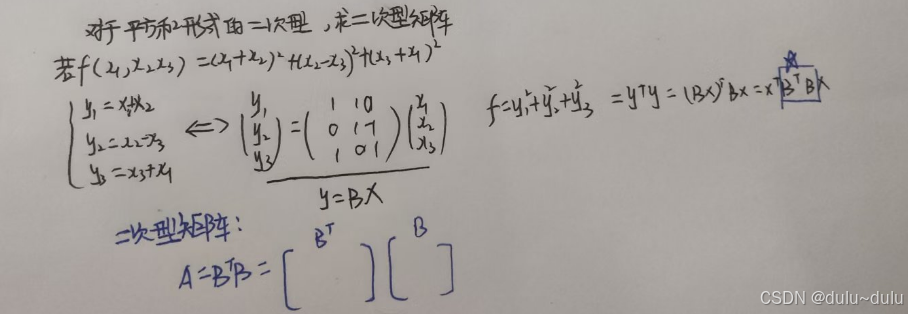 对于平方和形式的二次型,求二次型矩阵
若f(x₁,x₂x₃)=(x₁+x₂)²+(x₂-x₃)²+(x₃+x₁)²
y₁=x₁+x₂
y₂=x₂-x₃
y₃=x₃+x₁
⇔
y₁
y₂
y₃
=
1 1 0
0 1 -1
1 0 1
x₁
x₂
x₃
y=BX
f=y₁²+y₂²+y₃² =yᵀy=(BX)ᵀBX=xᵀBᵀBX
二次型矩阵:
A=BᵀB=[ ] [ ]
Bᵀ B
CSDN @dulu~dulu